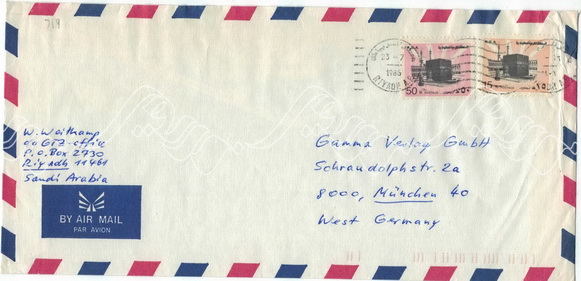 719
23-7
1985
RIYADH
50
٥٠
٢٥
W. Weitkamp
c/o GTZ-office
P.O. Box 2730
Riyadh 11461
Saudi Arabia
BY AIR MAIL
PAR AVION
Gamma Verlag GmbH
Schraudolphstr. 2a
8000, München 40
West Germany